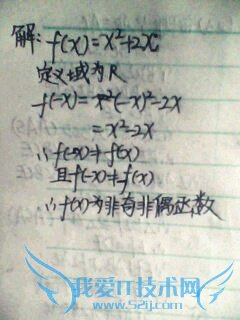 解: f(x)=x²+2x
定义域为R
f(-x)=x²(-x)²-2x
=x²-2x
∴f(-x)≠f(x)
且f(-x)≠-f(x)
∴f(x)为非奇非偶函数
我爱IT技术网
www.52ij.com